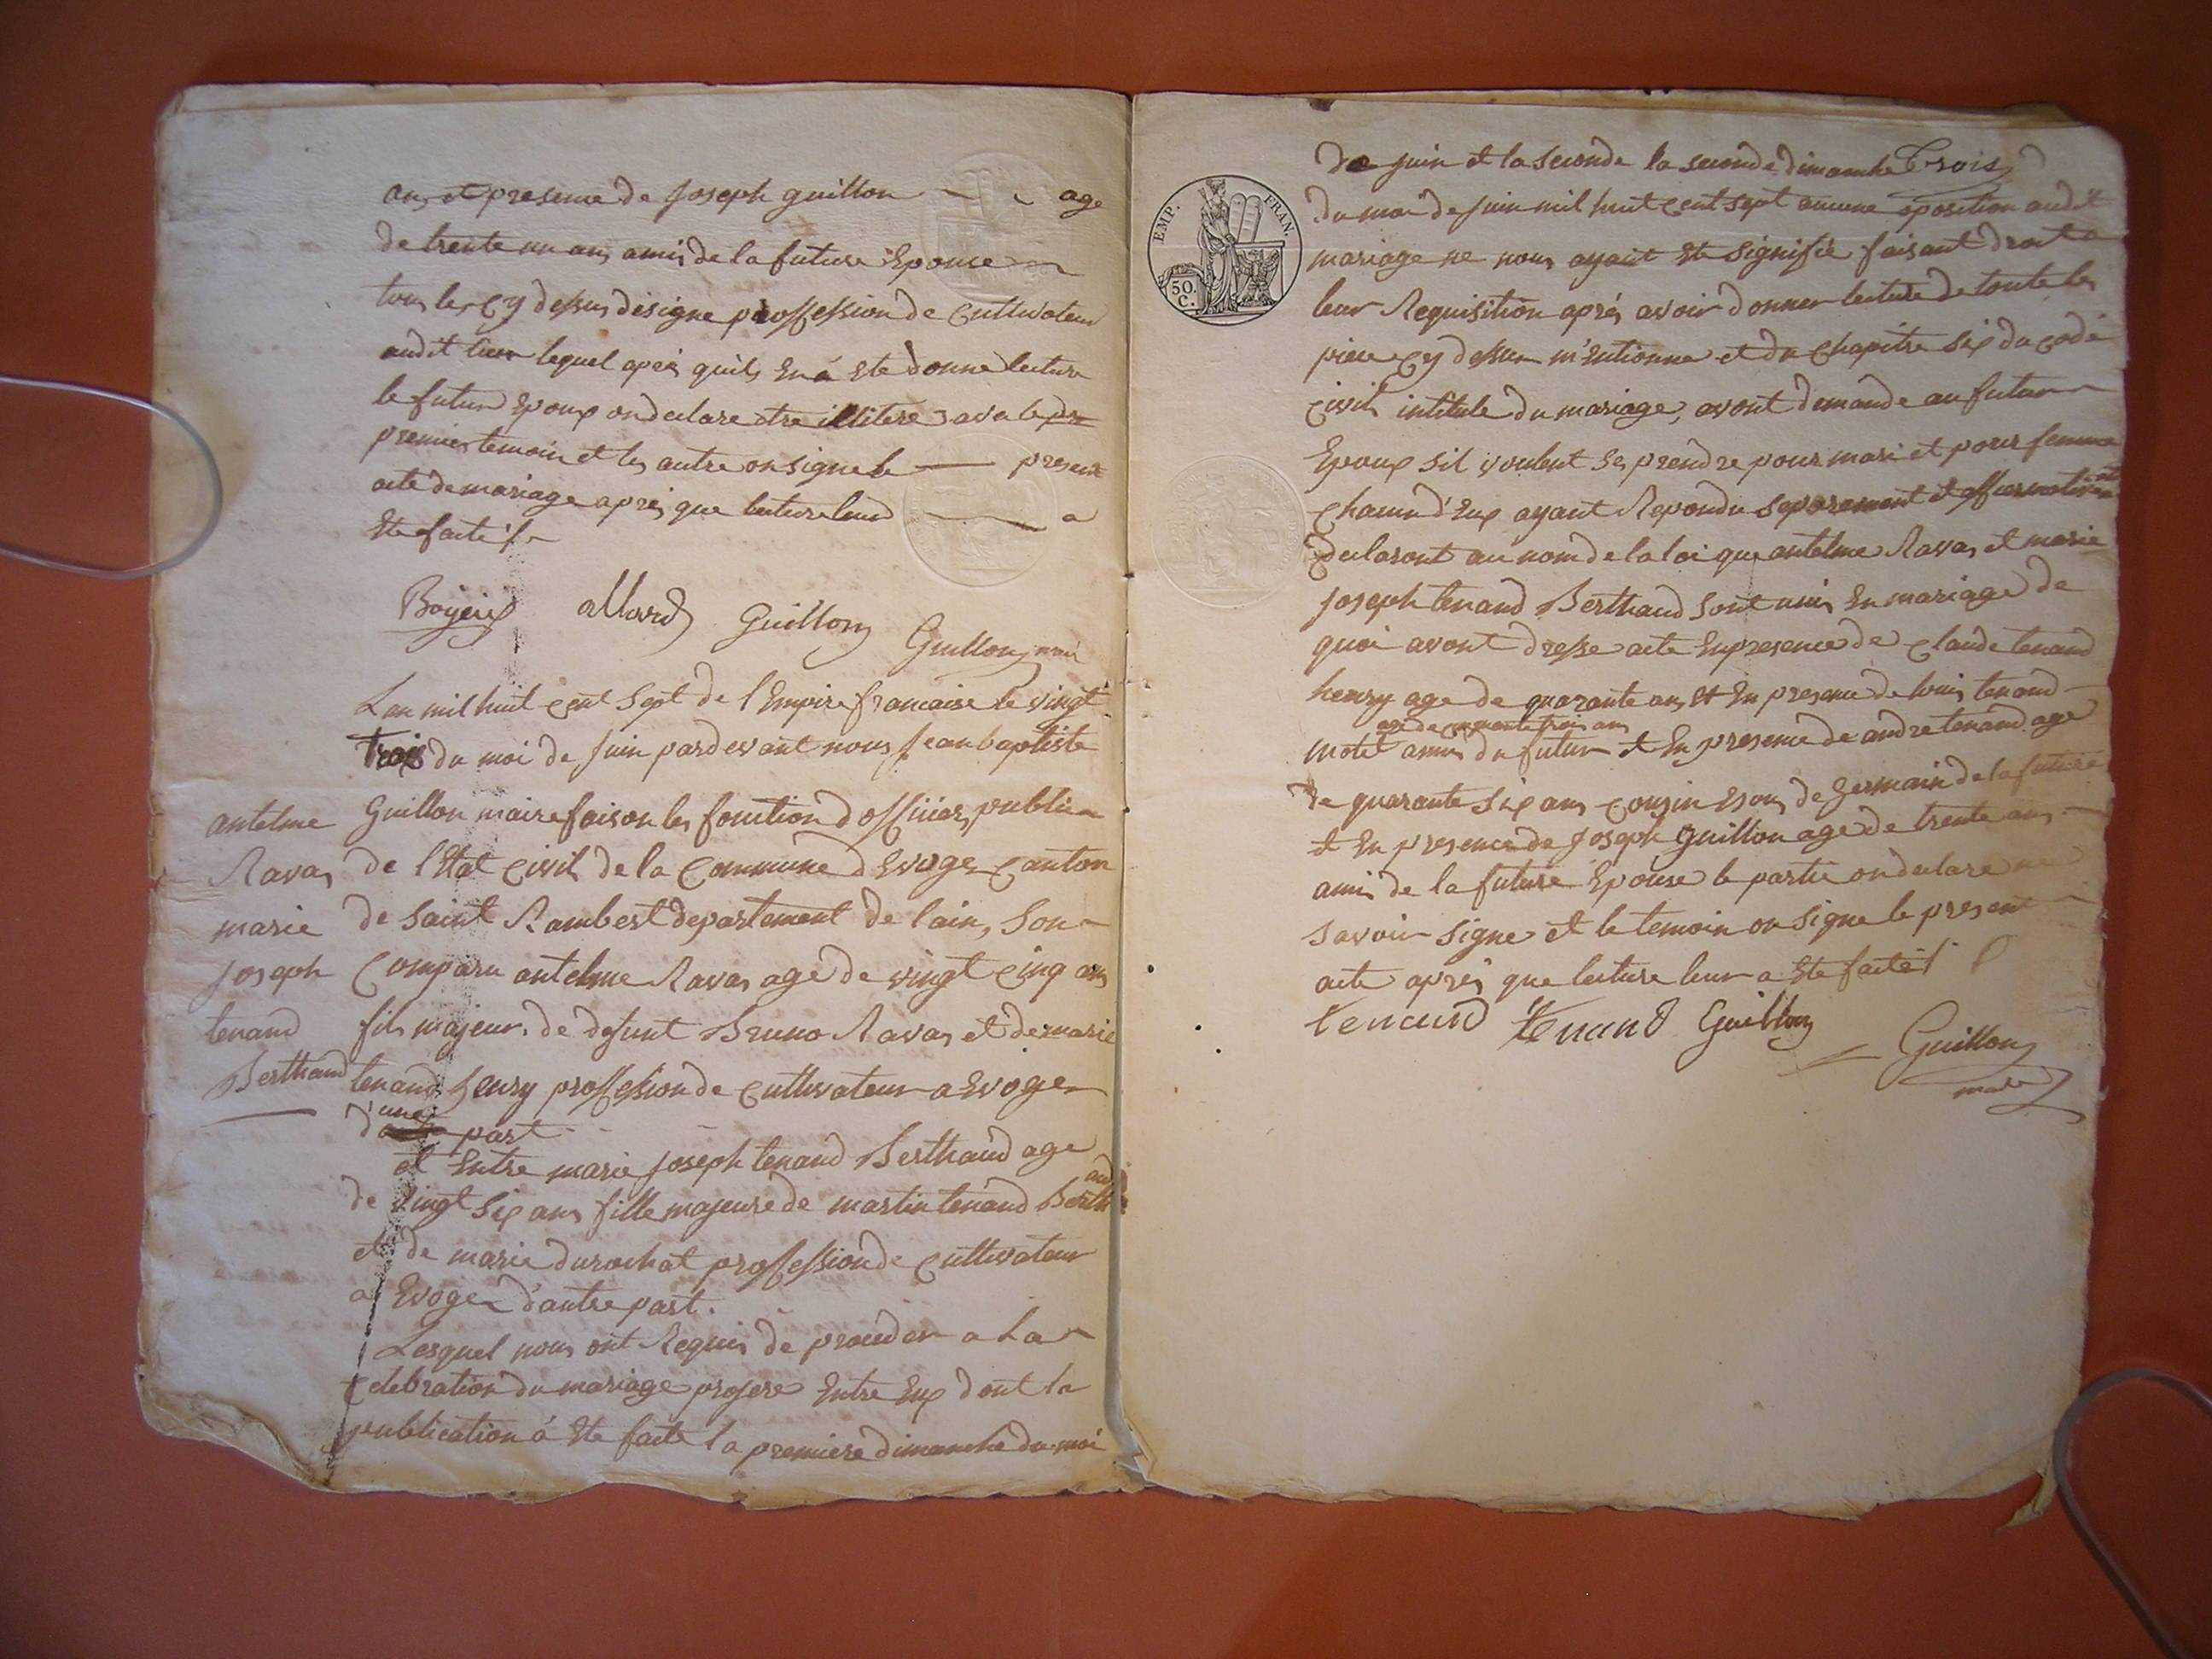 an, et presence de joseph guillon age
de trente un ans amis de la future Epouse
tous les cy dessus designe proffession de cultivateur
audit lieu lequel après quils En á Ete donne lecture
le futur Epoux on declare etre illitere avec le
premier temoin et les autre on signe le present
acte de mariage après que lecture leur a
Ete faite /.
allard Guillon Guillon mair
L an mil huit cent Sept de l Empire francaise le vingt
trois du moi de Juin pardevant nous Jean baptiste
Guillon maire faison les fonction d officier public
de l'Etat Civil de la Commune d Evoge Canton
de Saint Rambert departement de l'ain, Son
Comparu antelme Ravas age de vingt cinq ans
fils majeur de defunt Bruno Ravas et de marie
tenand henry proffession de cultivateur a Evoge
d'une part
antelme
Ravas
marie
joseph
tenand
Berthaud
et Entre marie joseph tenand Berthaud age
de vingt Six ans fille majeure de martin tenand Berthaud
et de marie durochat proffession de cultivateur
a Evoge d'autre part.
Lesquel nous ont Requis de proceder a La
celebration du mariage projere Entre Eux dont la
publication á Ete faite la premiere dimanche du moi
EMP. FRAN.
50.
C.
de juin et la Seconde la seconde dimanche Trois
du moi de juin mil huit cent sept aucune oposition audit
mariage ne nous ayant Ete Signifié faisant droit a
leur Requisition après avoir donner lecture de toute les
piece cy dessus m'Entionne et du Chapitre Six du code
civil intitule du mariage, avont demande au futur
Epoux sil voulent se prendre pour mari et pour femme
chacun d'Eux ayant Repondu Separement et affirmativement
declaront au nom de la loi que antelme Ravas et marie
joseph tenand Berthaud Sont unis En mariage de
quoi avont dresse acte En presence de claude tenand
henry age de quarante ans Et En presence de louis tenand
age de cinquante trois ans
motet amis du futur et En presence de andre tenand age
de quarante Six ans cousin Esous de Germain de la future
et En presence de Joseph Guillon age de trente ans
ami de la future Epouse le partie on declare ne
savoir signe et le temoin on signe le present
acte après que lecture leur a Ete faite /.
tenand tenand Guillon Guillon
maire